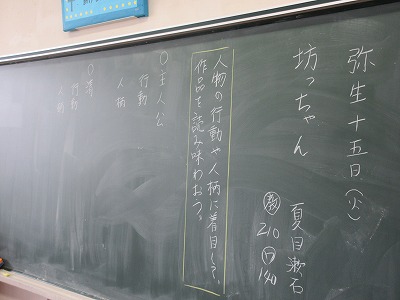 弥生十五日(火)
坊っちゃん 夏目漱石
教 210 ワ 140
人物の行動や人柄に着目して、
作品を読み味わおう。
○主人公
行動
人柄
行動
人柄